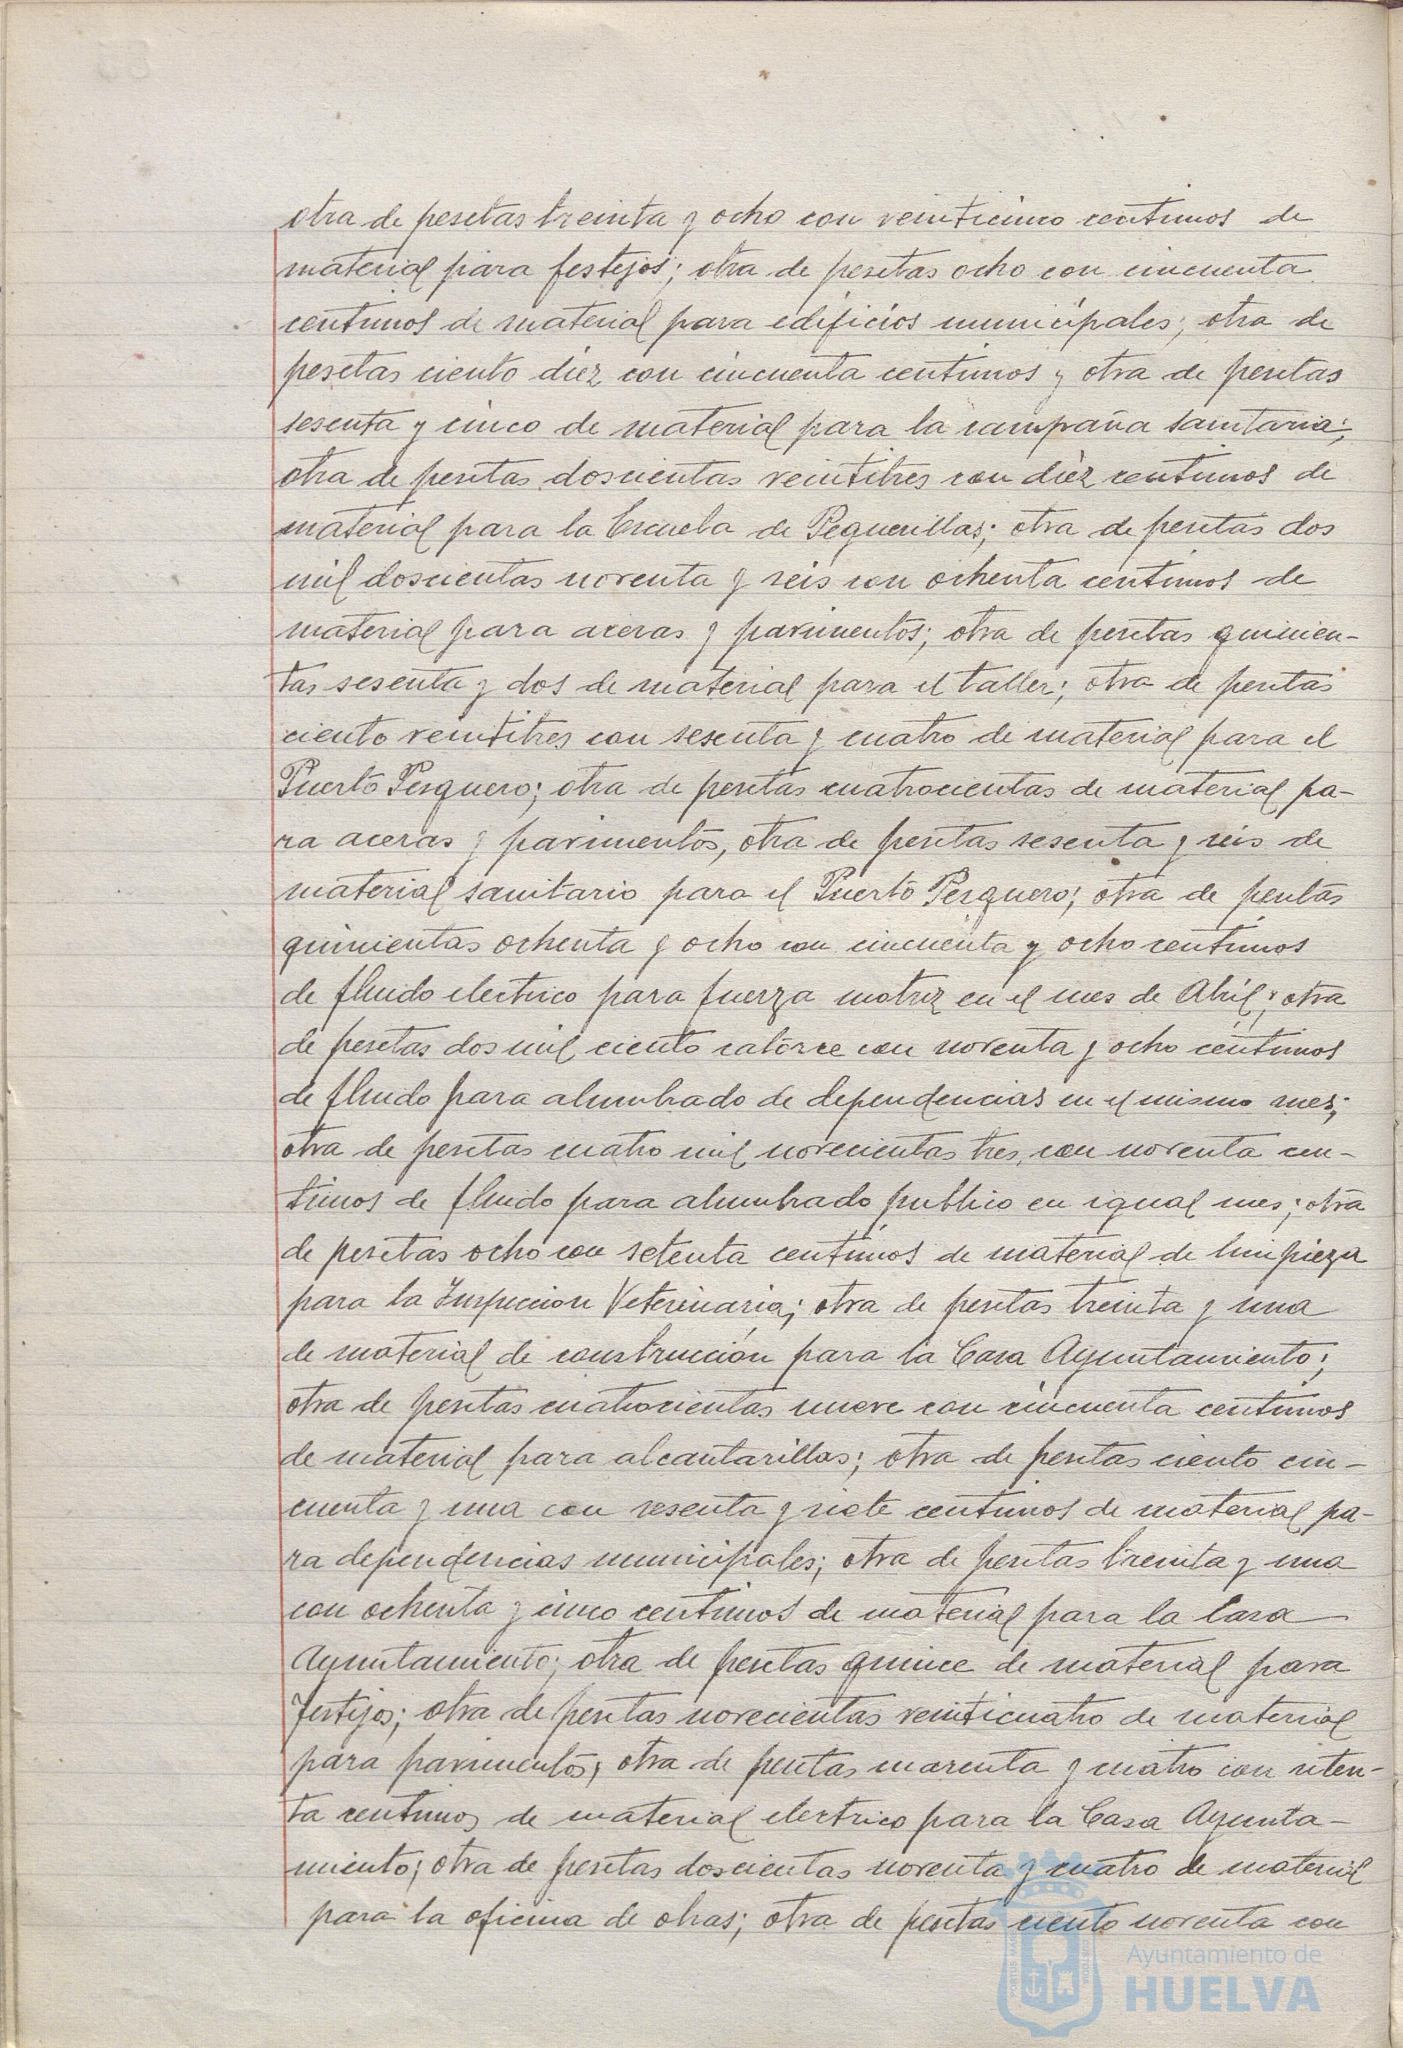 otra de pesetas treinta y ocho con veinticinco centimos de
material para festejos; otra de pesetas ocho con cincuenta
centimos de material para edificios municipales; otra de
pesetas ciento diez con cincuenta centimos y otra de pesetas
sesenta y cinco de material para la campaña sanitaria;
otra de pesetas doscientas veintitres con diez centimos de
material para la Escuela de Pequerillas; otra de pesetas dos
mil doscientas noventa y seis con ochenta centimos de
material para aceras y pavimentos; otra de pesetas quinien-
tas sesenta y dos de material para el taller; otra de pesetas
ciento veintitres con sesenta y cuatro de material para el
Puerto Pesquero; otra de pesetas cuatrocientas de material pa-
ra aceras y pavimentos, otra de pesetas sesenta y seis de
material sanitario para el Puerto Pesquero; otra de pesetas
quinientas ochenta y ocho con cincuenta y ocho centimos
de fluido electrico para fuerza motriz en el mes de Abril; otra
de pesetas dos mil ciento catorce con noventa y ocho centimos
de fluido para alumbrado de dependencias en el mismo mes;
otra de pesetas cuatro mil novecientas tres con noventa cen-
timos de fluido para alumbrado publico en igual mes; otra
de pesetas ocho con setenta centimos de material de limpieza
para la Inspeccion Veterinaria; otra de pesetas treinta y una
de material de construcción para la Casa Ayuntamiento;
otra de pesetas cuatrocientas nueve con cincuenta centimos
de material para alcantarillas; otra de pesetas ciento cin-
cuenta y una con sesenta y siete centimos de material pa-
ra dependencias municipales; otra de pesetas treinta y una
con ochenta y cinco centimos de material para la Casa
Ayuntamiento; otra de pesetas quince de material para
festejos; otra de pesetas novecientas veinticuatro de material
para pavimentos; otra de pesetas cuarenta y cuatro con seten-
ta centimos de material electrico para la Casa Ayunta-
miento; otra de pesetas doscientas noventa y cuatro de material
para la oficina de obras; otra de pesetas ciento noventa con
Ayuntamiento de
HUELVA